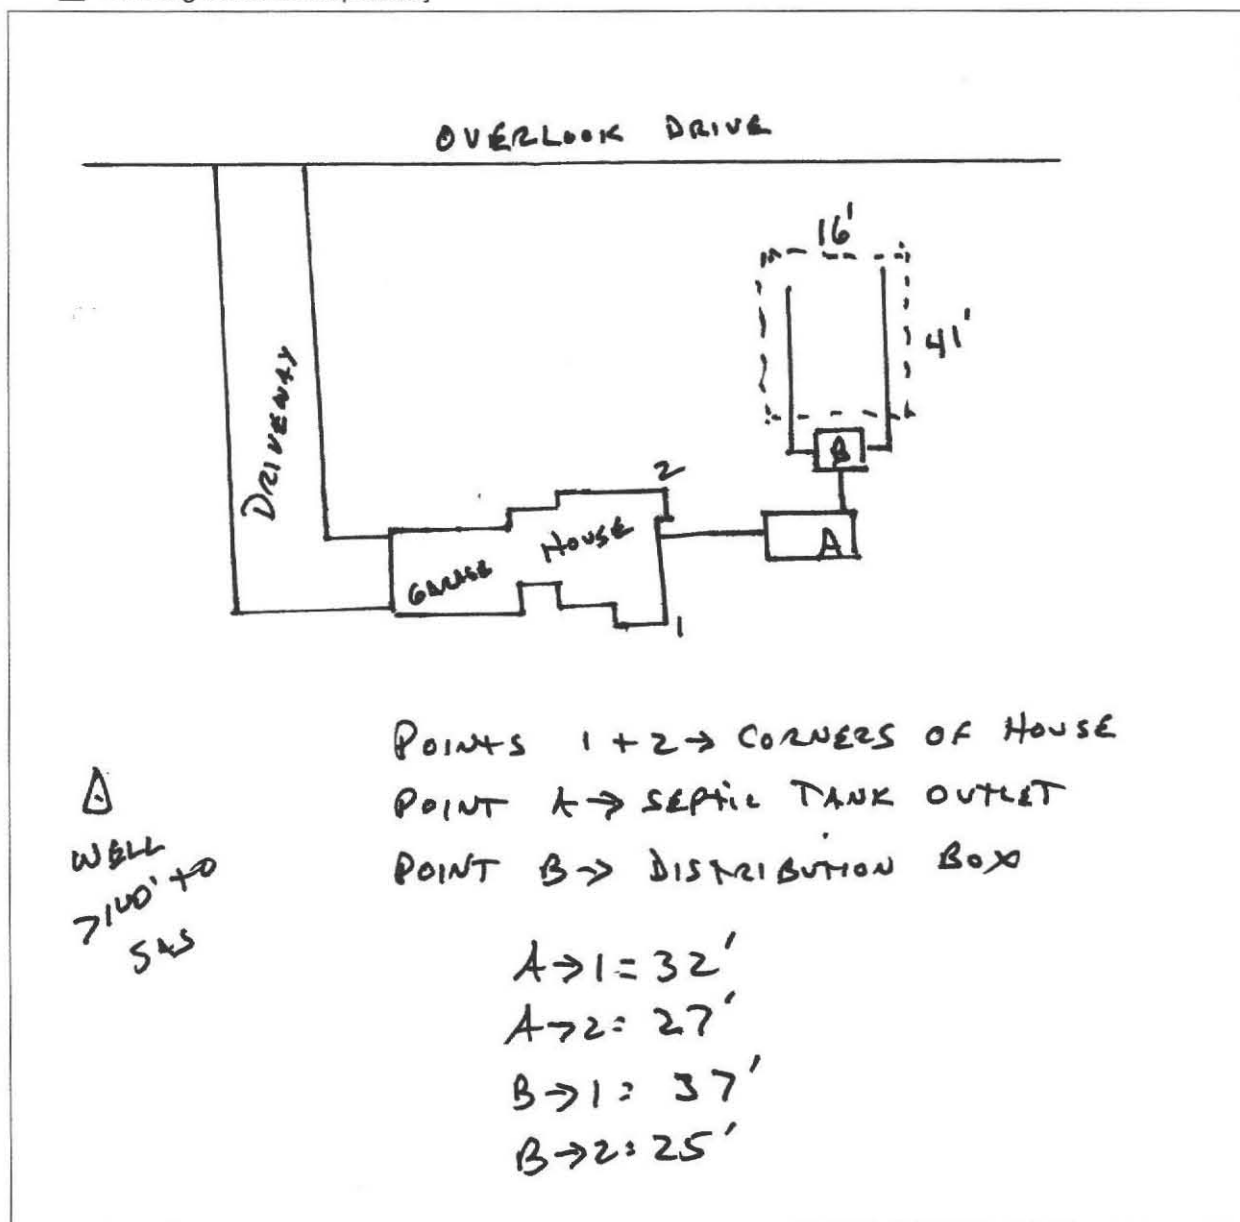 OVERLOOK DRIVE
16'
41'
DRIVEWAY
B
2
HOUSE
A
GARAGE
1
POINTS 1 + 2 → CORNERS OF HOUSE
POINT A → SEPTIC TANK OUTLET
POINT B → DISTRIBUTION BOX
WELL
>100' to
SAS
A→1 = 32'
A→2 = 27'
B→1 = 37'
B→2 = 25'